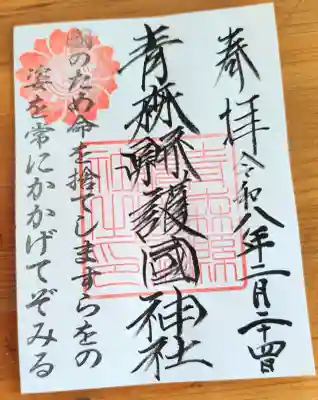 奉拝
令和八年二月二十四日
青森縣護國神社
國のため命を捨てしますらをの
姿を常にかかげてぞみる
青森縣
社之印